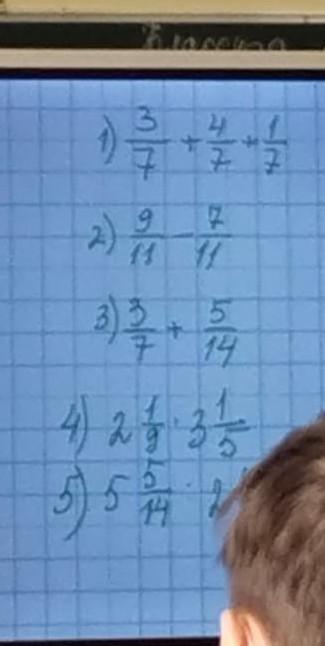 1) 3/7 + 4/7 + 1/7
2) 9/11 - 7/11
3) 3/7 + 5/14
4) 2 1/9 · 3 1/5
5) 5 5/14 · 2